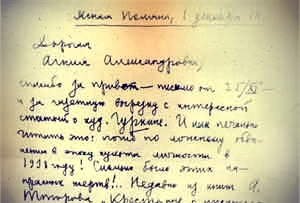 Ясная Поляна, 1 декабря
Дорогая
Александровна,
спасибо за привет — письмо от 25/XI —
и за газетную вырезку с интересной
статьей о худ. Гуркине. И как печально
читать это: погиб по ложному обви-
нению в эпоху культа личности в
году! Сколько было этих на-
прасных жертв!.. Недавно из книги